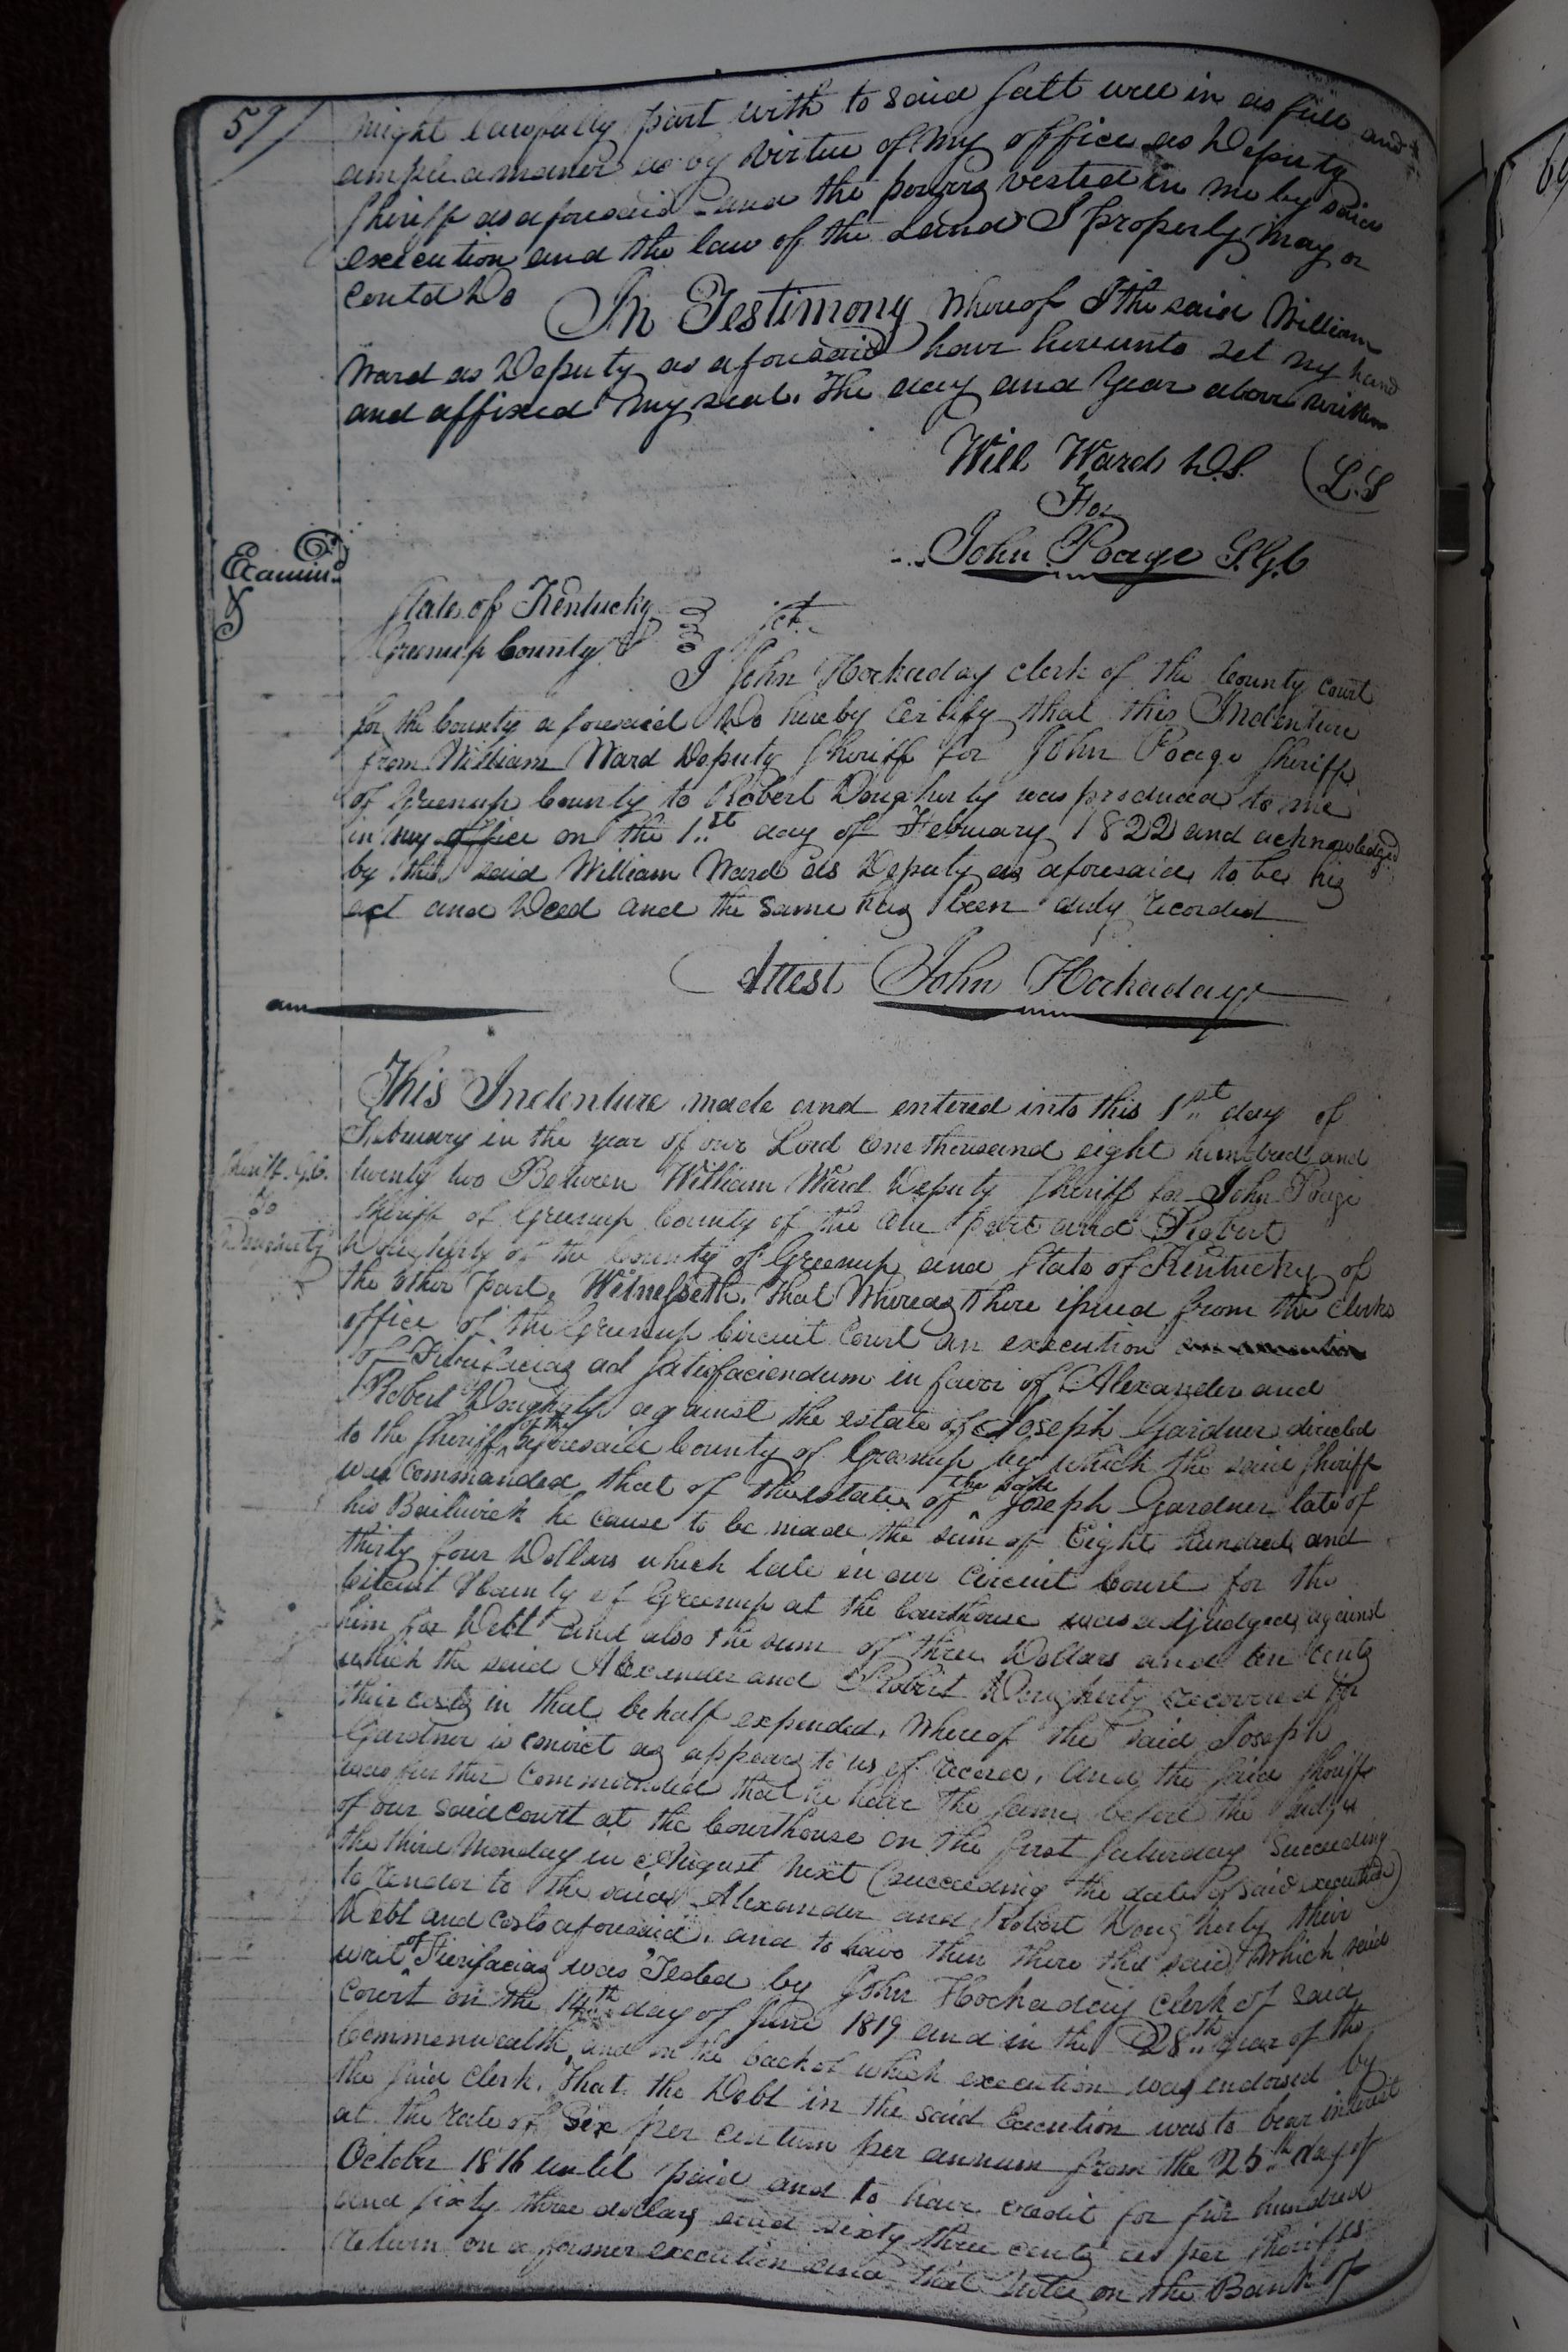 591
might lawfully part with to said salt well in as full and
ample a maner as by virtue of my office as Deputy
Sheriff as aforesaid and the powers vested in me by said
execution and the law of the Land I properly may or
Could Do
In Testimony Whereof I the said William
Ward as Deputy as aforesaid have hereunto set my hand
and affixed my seal. The day and Year above written
Will Ward D.S. (L.S
For
John Poage S.G.C
Examin.d
State of Kentucky
Greenup County Sct.
I John Hockaday clerk of the County Court
for the County aforesaid Do hereby Certify that this Indenture
from William Ward Deputy Sheriff for John Poage Sheriff
of Greenup County to Robert Dougherty was produced to me
in my office on the 1st day of February 1822 and acknowledged
by the said William Ward as Deputy as aforesaid to be his
act and Deed and the Same has been duly recorded
Attest John Hockaday
This Indenture made and entered into this 1st day of
February in the year of our Lord One thousand eight hundred and
Sheriff G.C.
twenty two Between William Ward Deputy Sheriff for John Poage
To
Sheriff of Greenup County of the one part and Robert
Dougherty
Dougherty of the County of Greenup and State of Kentucky of
the other part, Witnesseth, That Whereas there issued from the clerks
office of the Greenup Circuit Court an execution
of Fieri facias ad Satisfaciendum in favor of Alexander and
Robert Dougherty against the estate of Joseph Gardner directed
to the Sheriff of the aforesaid County of Greenup by which the said Sheriff
was Commanded that of the estate of the said Joseph Gardner late of
his Bailwick he cause to be made the sum of Eight hundred and
thirty four Dollars which late in our Circuit Court for the
Circuit & County of Greenup at the Courthouse was adjudged against
him for Debt and also the sum of three Dollars and ten cents
which the said Alexander and Robert Dougherty recovered for
their costs in that behalf expended, Whereof the said Joseph
Gardner is convict as appears to us of record, And the said Sheriff
was further Commanded that he have the Same before the Judge
of our said court at the Courthouse on the first Saturday Succeeding
the third Monday in August next (succeeding the date of said execution)
to render to the said Alexander and Robert Dougherty their
Debt and costs aforesaid, and to have then there the said Which said
writ of Fierifacias was Tested by John Hockaday Clerk of said
Court on the 14th day of June 1819 and in the 28th year of the
Commonwealth, and on the back of which execution was endorsed by
the said Clerk, That the Debt in the said Execution was to bear interest
at the rate of Six per centum per annum from the 25th day of
October 1816 until paid and to have credit for five hundred
and sixty three dollars and sixty three cents as per Sheriffs
return on a former execution and that Notes on the Bank of